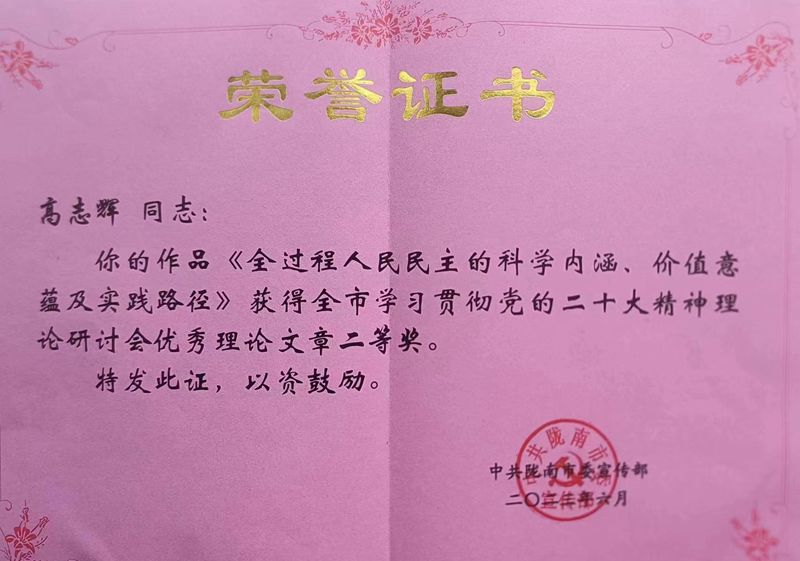 荣誉证书
高志辉 同志：
你的作品《全过程人民民主的科学内涵、价值意
蕴及实践路径》获得全市学习贯彻党的二十大精神理
论研讨会优秀理论文章二等奖。
特发此证，以资鼓励。
中共陇南市委宣传部
二〇二三年六月
中共陇南市委
宣传部